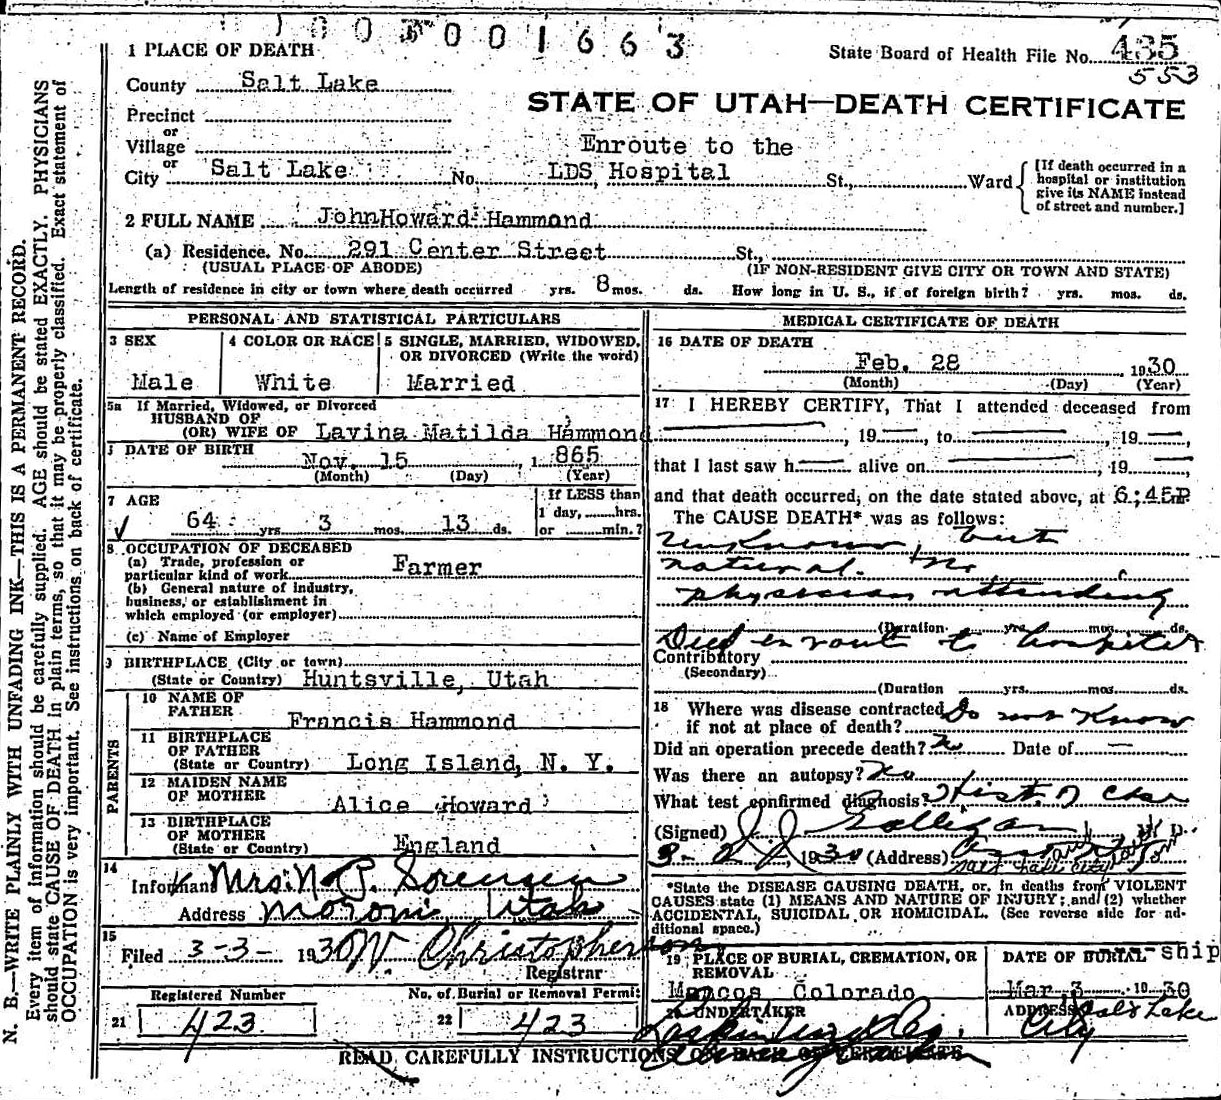 001663
State Board of Health File No. 435
553
1 PLACE OF DEATH
County Salt Lake
STATE OF UTAH—DEATH CERTIFICATE
Precinct
or
Village
Enroute to the
or
City Salt Lake No. LDS Hospital St., Ward
[If death occurred in a hospital or institution give its NAME instead of street and number.]
2 FULL NAME JohnHoward Hammond
(a) Residence. No. 291 Center Street St.,
(USUAL PLACE OF ABODE) (IF NON-RESIDENT GIVE CITY OR TOWN AND STATE)
Length of residence in city or town where death occurred yrs. 8 mos. ds. How long in U. S., if of foreign birth? yrs. mos. ds.
PERSONAL AND STATISTICAL PARTICULARS
3 SEX
Male
4 COLOR OR RACE
White
5 SINGLE, MARRIED, WIDOWED, OR DIVORCED (Write the word)
Married
5a If Married, Widowed, or Divorced
HUSBAND OF
(OR) WIFE OF Lavina Matilda Hammond
DATE OF BIRTH
Nov. 15, 1865
(Month) (Day) (Year)
7 AGE
64 yrs 3 mos. 13 ds.
If LESS than
1 day, hrs.
or min.?
8 OCCUPATION OF DECEASED
(a) Trade, profession or
particular kind of work Farmer
(b) General nature of industry,
business, or establishment in
which employed (or employer)
(c) Name of Employer
9 BIRTHPLACE (City or town)
(State or Country) Huntsville, Utah
PARENTS
10 NAME OF
FATHER Francis Hammond
11 BIRTHPLACE
OF FATHER
(State or Country) Long Island, N. Y.
12 MAIDEN NAME
OF MOTHER Alice Howard
13 BIRTHPLACE
OF MOTHER
(State or Country) England
14
Informant Mrs. N. P. Sorensen
Address Moroni, Utah
15
Filed 3-3- 1930 W Christopherson
Registrar
Registered Number
21 423
No. of Burial or Removal Permit
22 423
MEDICAL CERTIFICATE OF DEATH
16 DATE OF DEATH
Feb. 28 1930
(Month) (Day) (Year)
17 I HEREBY CERTIFY, That I attended deceased from
, 19 , to , 19 ,
that I last saw h alive on , 19 ,
and that death occurred, on the date stated above, at 6:45P m
The CAUSE DEATH* was as follows:
Unknown, but
natural. No
physician attending
(Duration yrs. mos. ds.
Died en route to hospital
Contributory
(Secondary)
(Duration yrs. mos. ds.
18 Where was disease contracted
if not at place of death? Do not know
Did an operation precede death? No Date of —
Was there an autopsy? No
What test confirmed diagnosis? Hist. of case
(Signed) J J Galligan M. D.
3-2 , 1930 (Address)
Salt Lake City
*State the DISEASE CAUSING DEATH, or, in deaths from VIOLENT
CAUSES state (1) MEANS AND NATURE OF INJURY; and (2) whether
ACCIDENTAL, SUICIDAL OR HOMICIDAL. (See reverse side for additional space.)
19 PLACE OF BURIAL, CREMATION, OR
REMOVAL
Mancos Colorado
DATE OF BURIAL ship
Mar 3 1930
20 UNDERTAKER
ADDRESS Salt Lake
City
READ CAREFULLY INSTRUCTIONS ON BACK OF CERTIFICATE
N. B.—WRITE PLAINLY WITH UNFADING INK—THIS IS A PERMANENT RECORD.
Every item of information should be carefully supplied. AGE should be stated EXACTLY. PHYSICIANS
should state CAUSE OF DEATH in plain terms, so that it may be properly classified. Exact statement of
OCCUPATION is very important. See instructions on back of certificate.